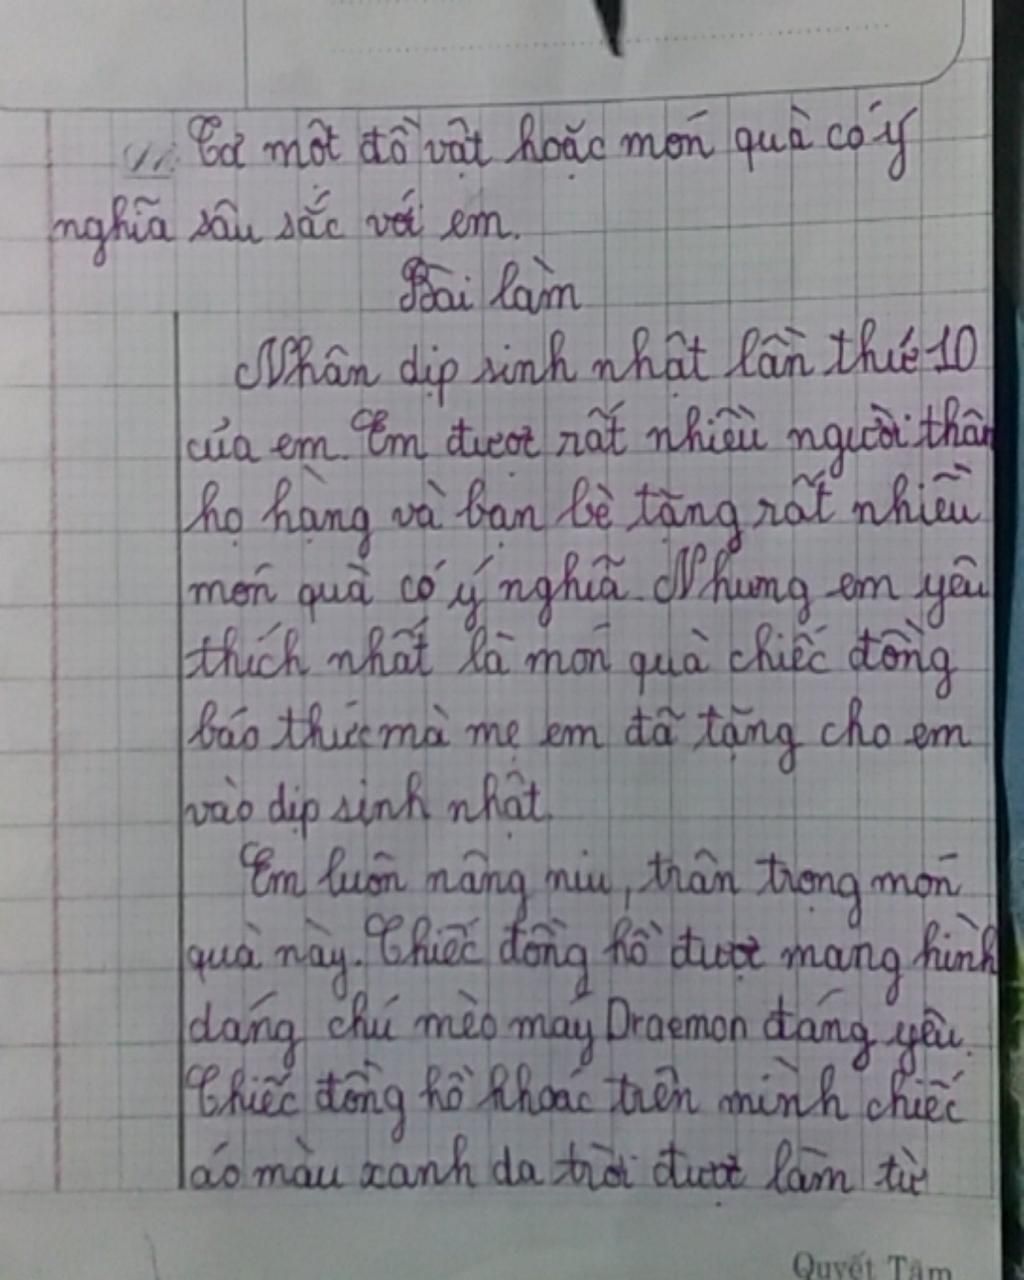 Tả một đồ vật hoặc món quà có ý
nghĩa sâu sắc với em.
Bài làm
Nhân dịp sinh nhật lần thứ 10
của em. Em được rất nhiều người thân
họ hàng và bạn bè tặng rất nhiều
món quà có ý nghĩa. Nhưng em yêu
thích nhất là món quà chiếc đồng
báo thức mà mẹ em đã tặng cho em
vào dịp sinh nhật.
Em luôn nâng niu, trân trọng món
quà này. Chiếc đồng hồ được mang hình
dáng chú mèo máy Draemon đáng yêu.
Chiếc đồng hồ khoác trên mình chiếc
áo màu xanh da trời được làm từ
Quyết Tâm